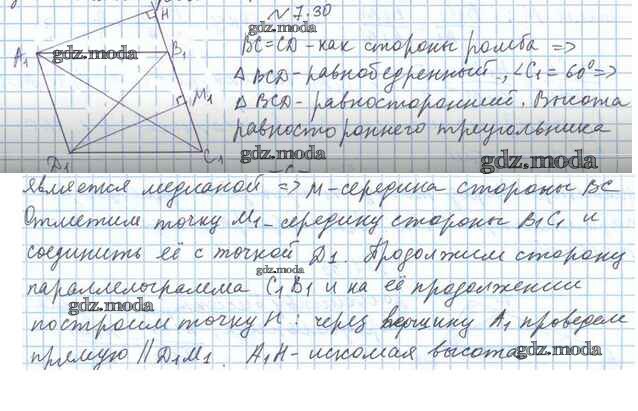 № 7.30
H
A₁
B₁
M₁
D₁
C₁
BC=CD - как стороны ромба =>
Δ BCD - равнобедренный, ∠C₁ = 60° =>
Δ BCD - равносторонний. Высота
равностороннего треугольника
является медианой => M - середина стороны BC
Отметим точку M₁ - середину стороны B₁C₁ и
соединить её с точкой D₁. Продолжим сторону
параллелограмма C₁B₁ и на её продолжении
построим точку H: через вершину A₁ проведем
прямую || D₁M₁. A₁H - искомая высота
gdz.moda
gdz.moda
gdz.moda
gdz.moda
gdz.moda
gdz.moda
gdz.moda
gdz.moda
gdz.moda
gdz.moda